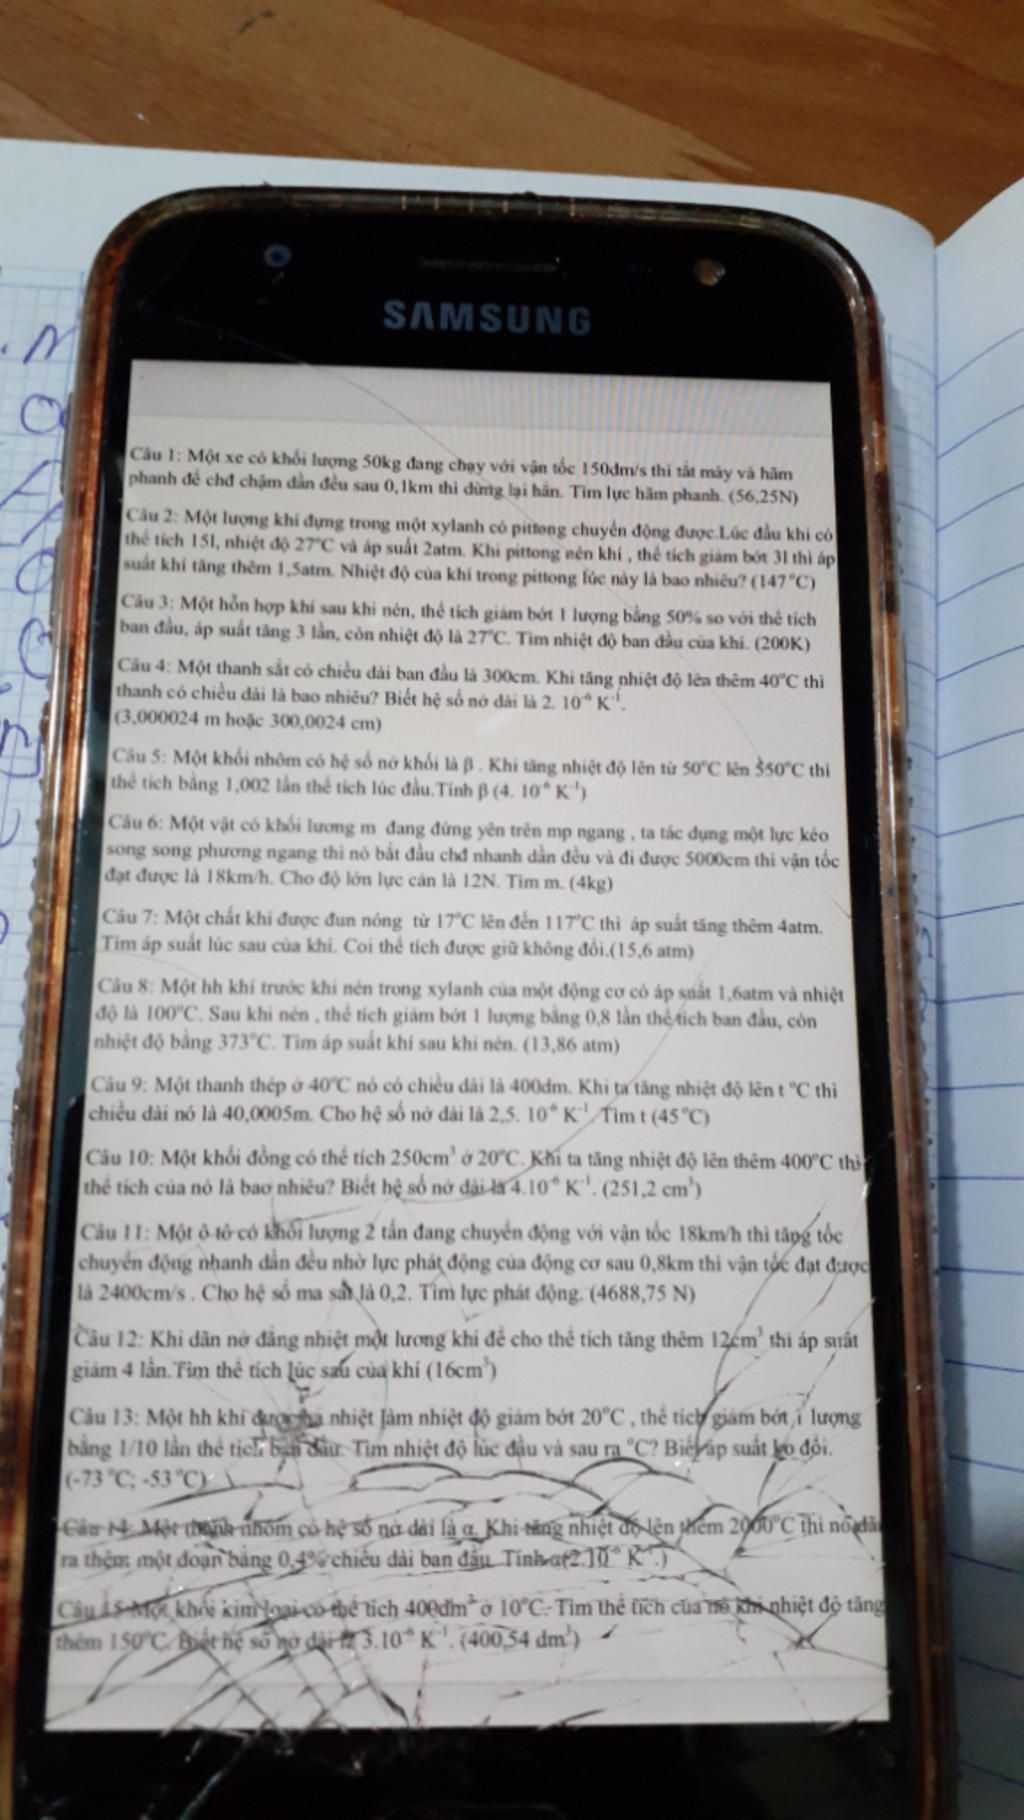 SAMSUNG
Câu 1: Một xe có khối lượng 50kg đang chạy với vận tốc 150dm/s thì tắt máy và hãm
phanh để chđ chậm dần đều sau 0,1km thì dừng lại hẳn. Tìm lực hãm phanh. (56,25N)
Câu 2: Một lượng khí đựng trong một xylanh có pittong chuyển động được.Lúc đầu khí có
thể tích 15l, nhiệt độ 27°C và áp suất 2atm. Khi pittong nén khí , thể tích giảm bớt 3l thì áp
suất khí tăng thêm 1,5atm. Nhiệt độ của khí trong pittong lúc này là bao nhiêu? (147°C)
Câu 3: Một hỗn hợp khí sau khi nén, thể tích giảm bớt 1 lượng bằng 50% so với thể tích
ban đầu, áp suất tăng 3 lần, còn nhiệt độ là 27°C. Tìm nhiệt độ ban đầu của khí. (200K)
Câu 4: Một thanh sắt có chiều dài ban đầu là 300cm. Khi tăng nhiệt độ lên thêm 40°C thì
thanh có chiều dài là bao nhiêu? Biết hệ số nở dài là 2. 10⁻⁶ K⁻¹.
(3,000024 m hoặc 300,0024 cm)
Câu 5: Một khối nhôm có hệ số nở khối là β . Khi tăng nhiệt độ lên từ 50°C lên 550°C thì
thể tích bằng 1,002 lần thể tích lúc đầu.Tính β (4. 10⁻⁶ K⁻¹)
Câu 6: Một vật có khối lương m đang đứng yên trên mp ngang , ta tác dụng một lực kéo
song song phương ngang thì nó bắt đầu chđ nhanh dần đều và đi được 5000cm thì vận tốc
đạt được là 18km/h. Cho độ lớn lực cản là 12N. Tìm m. (4kg)
Câu 7: Một chất khí được đun nóng từ 17°C lên đến 117°C thì áp suất tăng thêm 4atm.
Tìm áp suất lúc sau của khí. Coi thể tích được giữ không đổi.(15,6 atm)
Câu 8: Một hh khí trước khi nén trong xylanh của một động cơ có áp suất 1,6atm và nhiệt
độ là 100°C. Sau khi nén , thể tích giảm bớt 1 lượng bằng 0,8 lần thể tích ban đầu, còn
nhiệt độ bằng 373°C. Tìm áp suất khí sau khi nén. (13,86 atm)
Câu 9: Một thanh thép ở 40°C nó có chiều dài là 400dm. Khi ta tăng nhiệt độ lên t °C thì
chiều dài nó là 40,0005m. Cho hệ số nở dài là 2,5. 10⁻⁶ K⁻¹. Tìm t (45°C)
Câu 10: Một khối đồng có thể tích 250cm³ ở 20°C. Khi ta tăng nhiệt độ lên thêm 400°C thì
thể tích của nó là bao nhiêu? Biết hệ số nở dài là 4.10⁻⁶ K⁻¹. (251,2 cm³)
Câu 11: Một ô-tô có khối lượng 2 tấn đang chuyển động với vận tốc 18km/h thì tăng tốc
chuyển động nhanh dần đều nhờ lực phát động của động cơ sau 0,8km thì vận tốc đạt được
là 2400cm/s . Cho hệ số ma sát là 0,2. Tìm lực phát động. (4688,75 N)
Câu 12: Khi dãn nở đẳng nhiệt một lương khí để cho thể tích tăng thêm 12cm³ thì áp suất
giảm 4 lần.Tìm thể tích lúc sau của khí (16cm³)
Câu 13: Một hh khí được hạ nhiệt làm nhiệt độ giảm bớt 20°C , thể tích giảm bớt 1 lượng
bằng 1/10 lần thể tích ban đầu. Tìm nhiệt độ lúc đầu và sau ra °C? Biết áp suất ko đổi.
(-73 °C; -53°C)
Câu 14: Một thanh nhôm có hệ số nở dài là α. Khi tăng nhiệt độ lên thêm 2000°C thì nó dài
ra thêm một đoạn bằng 0,4% chiều dài ban đầu. Tính α(2.10⁻⁶ K⁻¹.)
Câu 15 Một khối kim loại có thể tích 400dm³ ở 10°C. Tìm thể tích của nó khi nhiệt độ tăng
thêm 150°C. Biết hệ số nở dài là 3.10⁻⁶ K⁻¹. (400,54 dm³)